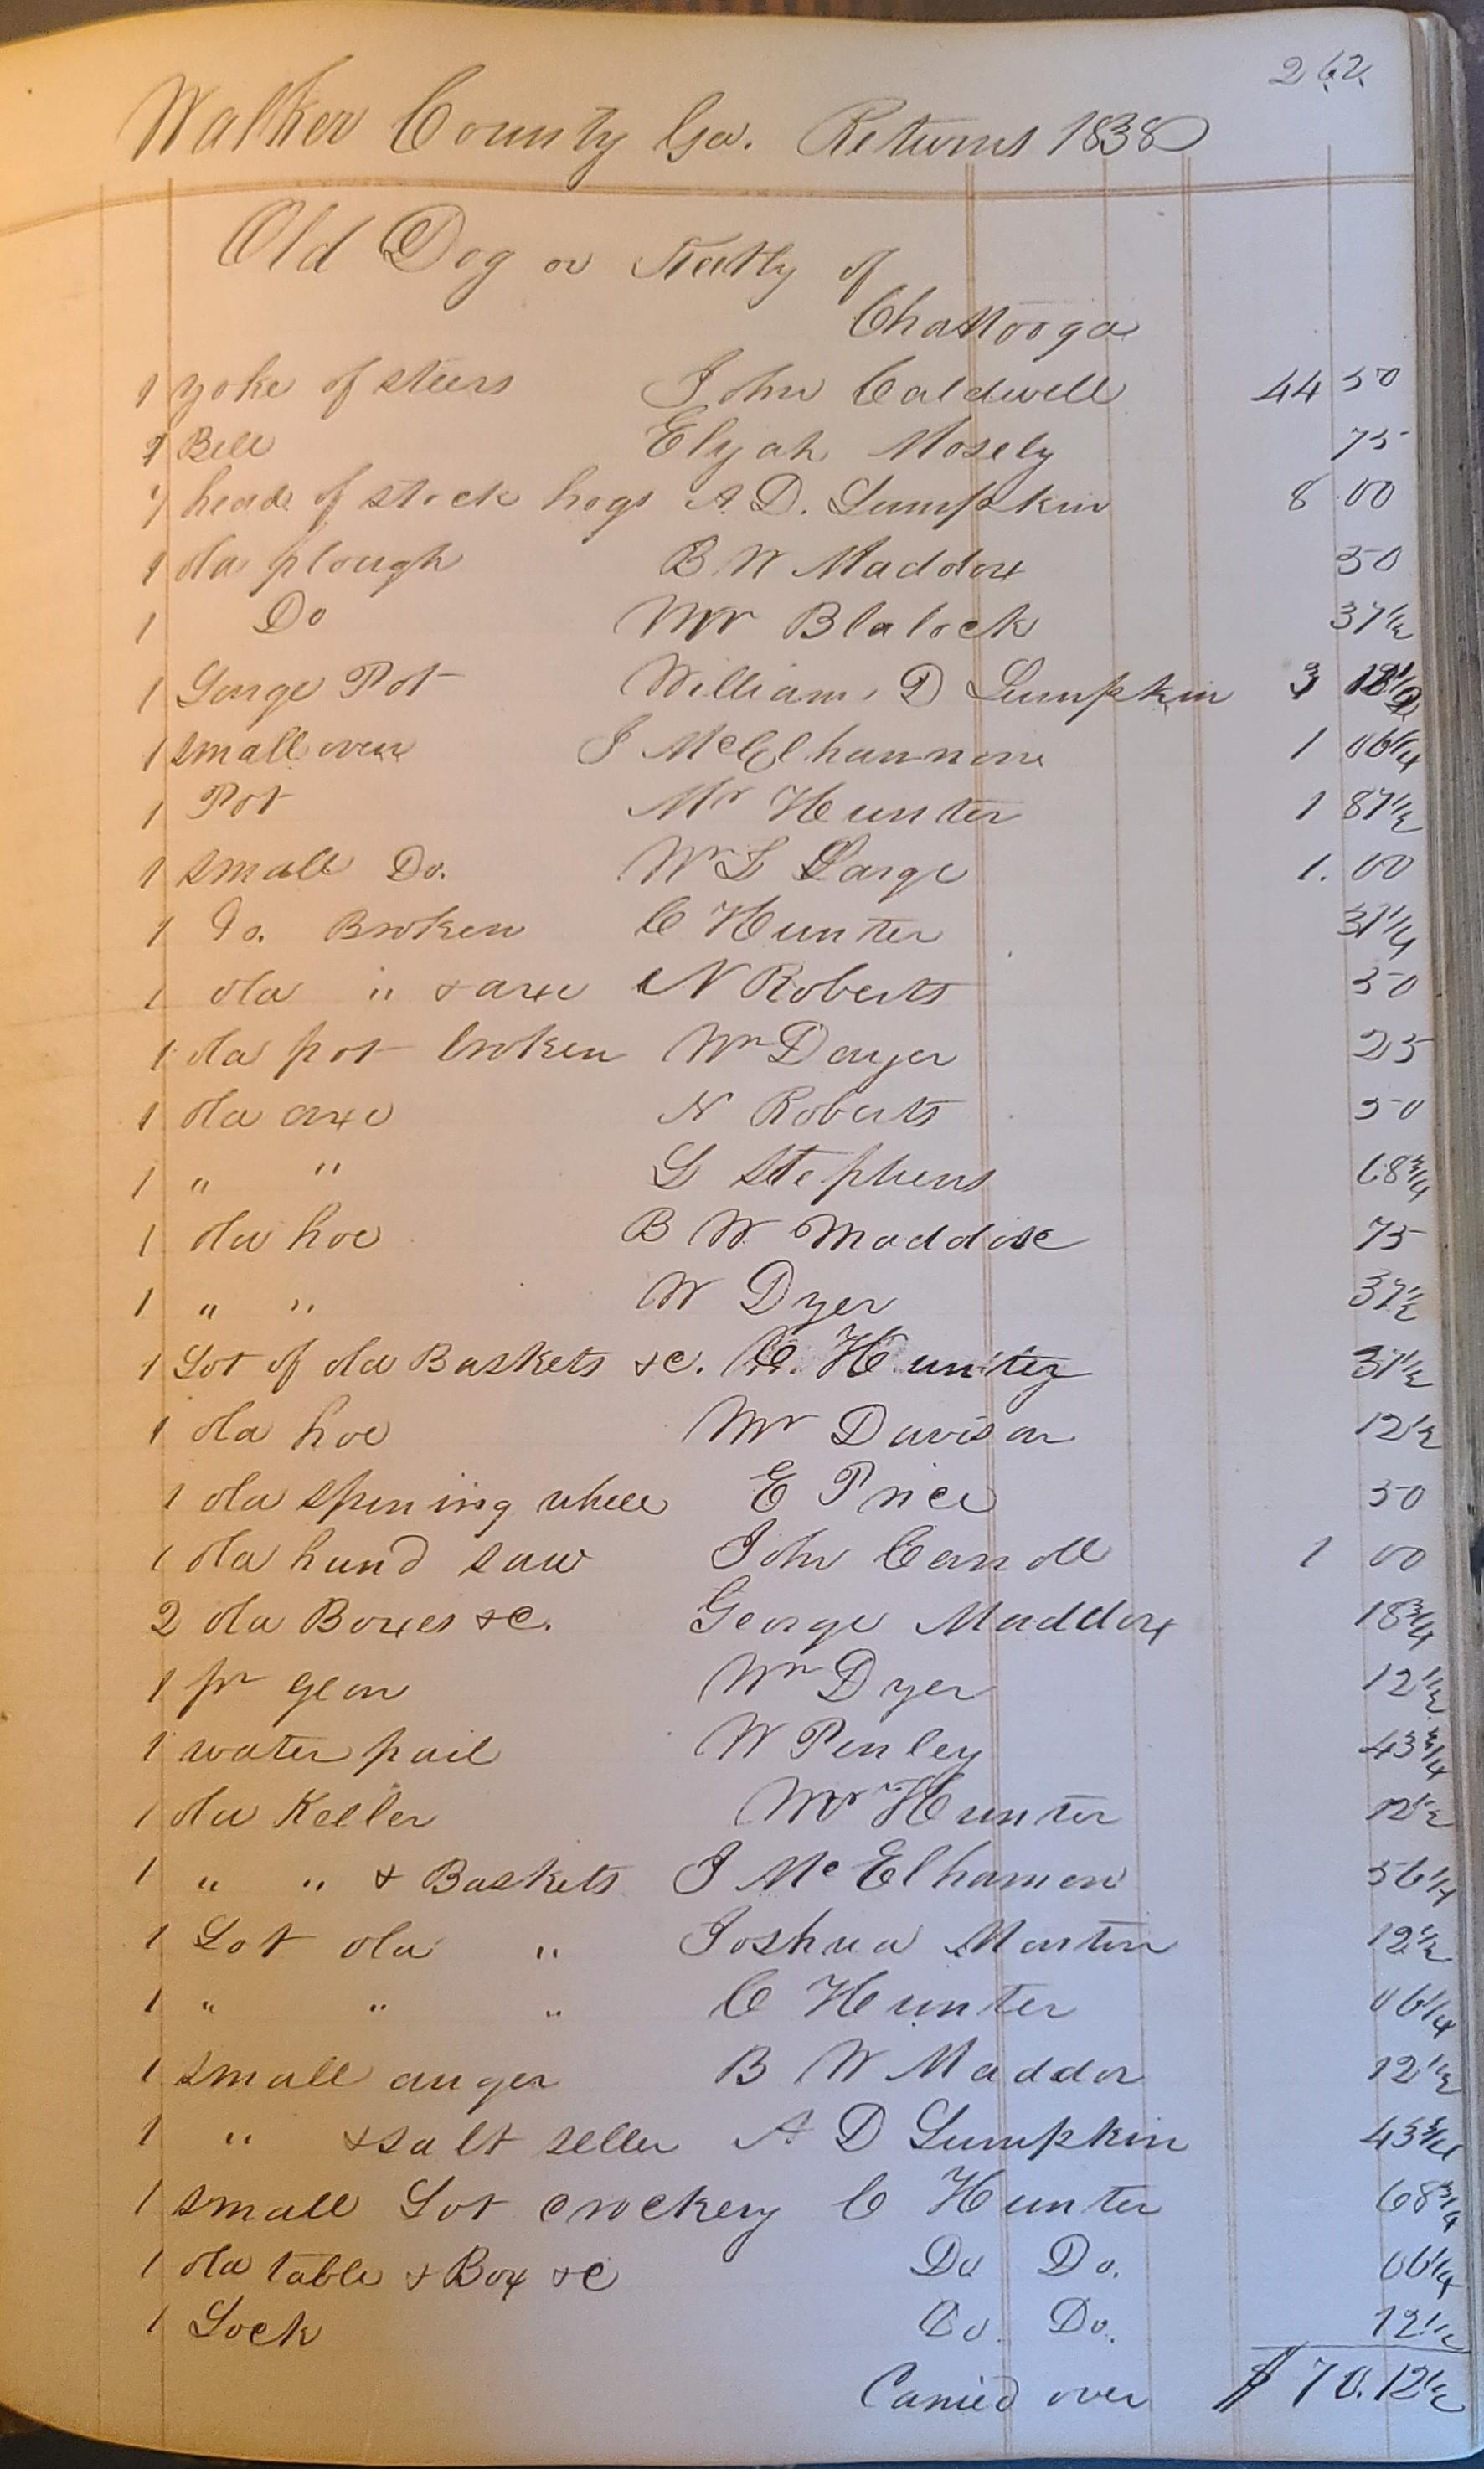 262
Walker County Ga. Returns 1838
Old Dog or of
Chattooga
1 yoke of steers John Caldwell 44 50
1 Bell Elyah Mosely 75
7 head of stock hogs A. D. Lumpkin 8 00
1 old plough B. W Maddox 50
1 Do Mr Blalock 37 1/2
1 Large Pot William D Lumpkin 3
1 small oven J McElhannon 1 06 1/4
1 Pot Mr Hunter 1 87 1/2
1 small Do. Wm L Large 1.00
1 Do. Broken C Hunter 31 1/4
1 old " & axe N Roberts 50
1 old pot broken Wm Dayer 25
1 old axe N Roberts 50
1 " " L Stephens 68 3/4
1 old hoe B W Maddox 75
1 " " W Dyer 37 1/2
1 Lot of old Baskets &c. C. Hunter 37 1/2
1 old hoe Mr Davison 12 1/2
1 old spining wheel E Price 50
1 old hand saw John Carroll 1 00
2 old Boxes &C. George Maddox 18 3/4
1 pr gear Wm Dyer 12 1/2
1 water pail W Penley 43 3/4
1 old Keeler Mr Hunter 12 1/2
1 " " & Baskets J McElhannon 56 1/4
1 Lot old " Joshua Martin 12 1/2
1 " " " C Hunter 06 1/4
1 small auger B W Maddox 12 1/2
1 " & salt seller A D Lumpkin 43 3/4
1 small Lot crockery C Hunter 68 3/4
1 old table & Box &C Do Do. 06 1/4
1 Lock Do. Do. 12 1/2
Carried over $ 70.12 1/2